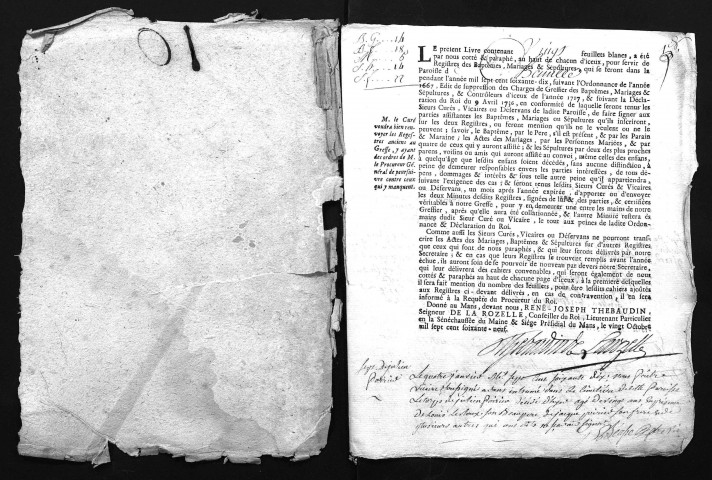 10
B. G. 14
18
6
F. 14
12
LE présent Livre contenant vingt feuillets blancs, a été
par nous coté & paraphé, au haut de chacun d'iceux, pour servir de
Registre des Baptêmes, Mariages & Sépultures, qui se feront dans la
Paroisse d
pendant l'année mil sept cent soixante-dix, suivant l'Ordonnance de l'année
1667, Edit de suppression des Charges de Greffier des Baptêmes, Mariages &
Sépultures, & Contrôleurs d'iceux de l'année 1717, & suivant la Décla-
ration du Roi du 9 Avril 1736, en conformité de laquelle seront tenus les
Sieurs Curés, Vicaires ou Desservans de ladite Paroisse, de faire signer aux
parties assistantes les Baptêmes, Mariages ou Sépultures qu'ils inscriront,
sur les deux Registres, ou feront mention qu'ils ne le veulent ou ne le
peuvent; savoir, le Baptême, par le Pere, s'il est présent, & par les Parain
& Maraine; les Actes des Mariages, par les Personnes Mariées, & par
quatre de ceux qui y auront assisté; & les Sépultures par deux des plus proches
parens, voisins ou amis qui auront assisté au convoi, même celles des enfans,
à quelqu'âge que lesdits enfans soient décédés, sans aucune distinction, à
peine de demeurer responsables envers les parties intéressées, de tous dé-
pens, dommages & intérêts & sous telle autre peine qu'il appartiendra,
suivant l'exigence des cas: & seront tenus lesdits Sieurs Curés & Vicaires
ou Desservans, un mois après l'année expirée, d'apporter ou d'envoyer
les deux Minutes desdits Registres, signées de lui, des parties, & certifiées
véritables à notre Greffe, pour y en demeurer une entre les mains de notre
Greffier, après qu'elle aura été collationnée, & l'autre Minute restera és
mains dudit Sieur Curé ou Vicaire, le tout aux peines de ladite Ordon-
nance & Déclaration du Roi.
M. le Curé
voudra bien ren-
voyer les Regis-
tres anciens au
Greffe, y ayant
des ordres de M.
le Procureur Gé-
néral de poursui-
vre contre ceux
qui y manquent.
Comme aussi les Sieurs Curés, Vicaires ou Desservans ne pourront trans-
crire les Actes des Mariages, Baptêmes & Sépultures sur d'autres Registres
que ceux qui sont de nous paraphés, & qui leur seront délivrés par notre
Secretaire; & en cas que leurs Registres se trouvent remplis avant l'année
échue, ils auront soin de se pourvoir de nouveau par devers notre Secretaire,
qui leur délivrera des cahiers convenables, qui seront également de nous
cottés & paraphés au haut de chacune page d'iceux, à la premiere desquelles
il sera fait mention du nombre des feuillets, pour être lesdits cahiers ajoutés
aux Registres ci-devant délivrés, en cas de contravention, il en sera
informé à la Requête du Procureur du Roi.
Donné au Mans, devant nous, RENÉ-JOSEPH THEBAUDIN,
Seigneur DE LA ROZELLE, Conseiller du Roi, Lieutenant Particulier
en la Sénéchaussée du Maine & Siége Présidial du Mans, le vingt Octobre
mil sept cent soixante-neuf.
Thebaudin de la Rozelle
Le quatre janvier mil sept cent soixante dix, nous Prêtre
Vicaire soussigné avons inhumé dans le cimetière de cette Paroisse
le corps de julien
de Louis son
plusieurs autres qui ont